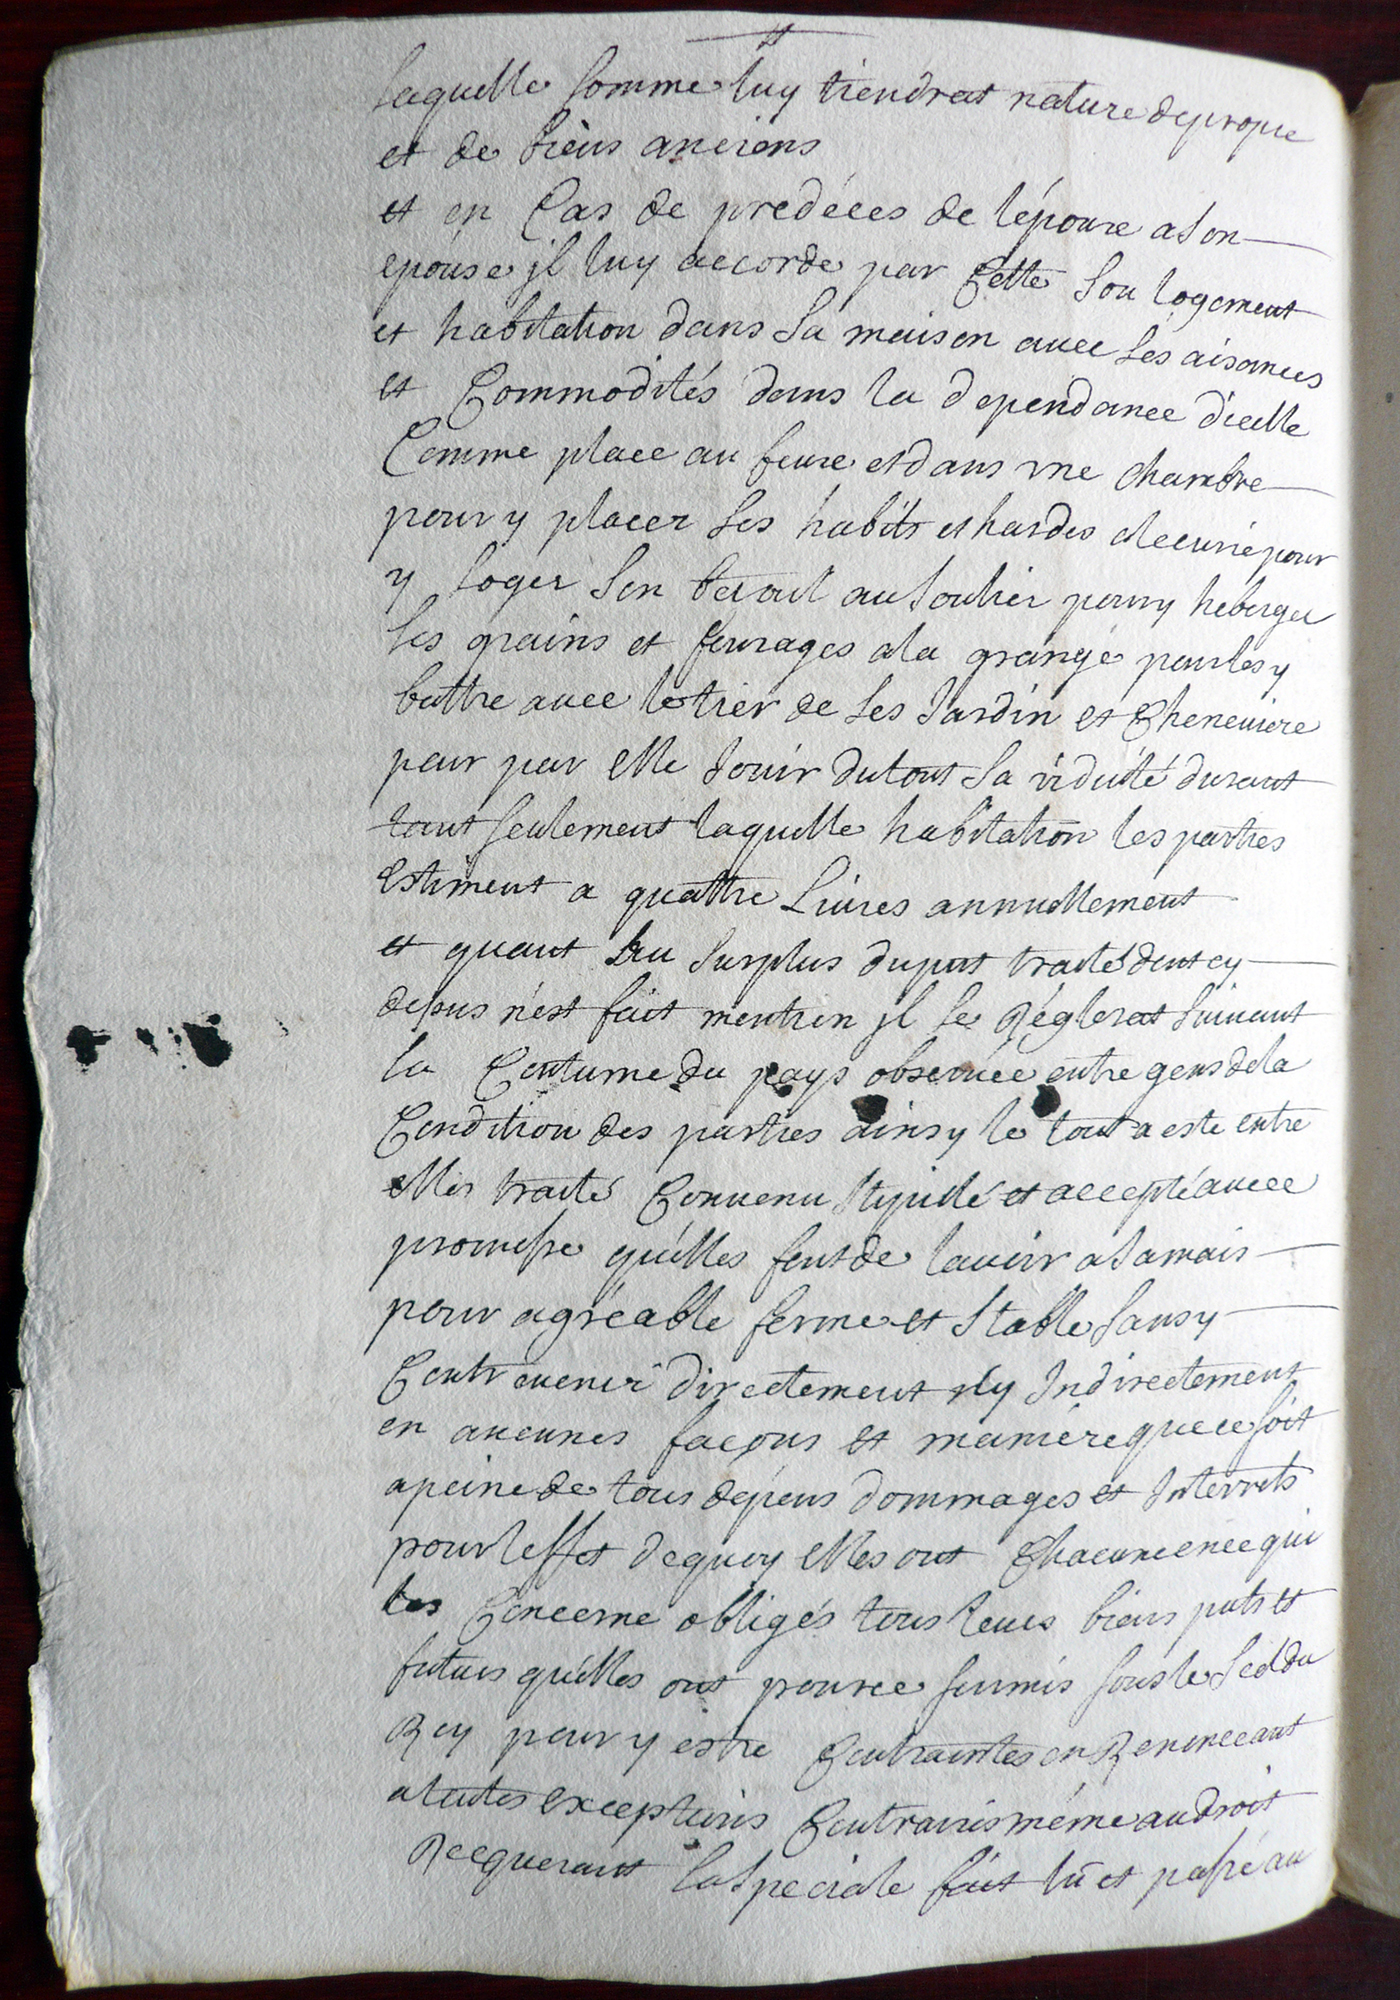 laquelle somme luy tiendrat nature depropre
et de biens anciens
et en Cas de predéces de lépoux a son
epouse jl luy accorde par Cette son logement
et habitation dans sa maison avec ses aisances
et Commodités dans la dependance dicelle
Comme place au feure et dans une chambre
pour y placer ses habits et hardes alecurie pour
y loger son betail au soulier pour y heberger
ses grains et fourages ala grange pour les y
battre avec le tier de ses Jardin et Cheneviere
pour par elle Jouir dutout sa viduité durant
tant seulement laquelle habitation les parties
Estiment a quattre Livres annuellement
et quant au surplus dupnt traité dont cy
desus nest fait mention jl se Réglerat suivant
la Coutume du pays observée entre gens dela
Condition des parties ainsy le tout a esté entre
elles traité Convenu stipulé et accepté avece
promesse quélles font de lavoir a Jamais
pour agréable ferme et stable sans y
Contrevenir directement ny Indirectement
en aucunes façons et maniére que ce soit
apeine de tous dépens dommages et Interrets
pour leffet dequoy elles ont Chacune en ce qui
les Concerne obligés tous leurs biens pnts et
futurs quélles ont pour ce soumis sous le scel du
Roy pour y estre Contraintes en Renonceant
a toutes exceptions Contraires méme au droit
Recquerant la speciale fait lû et passé au